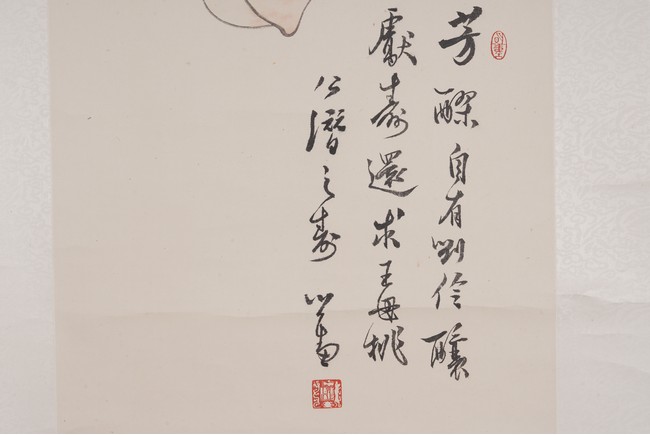 芳醪自有劉伶釀
獻壽還求王母桃
公潛之壽 心畬